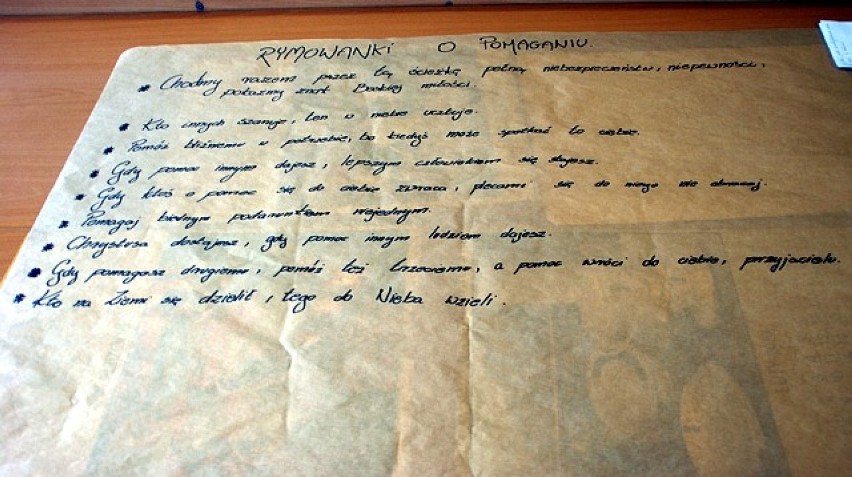 RYMOWANKI O POMAGANIU.
* Chodźmy razem przez tą ścieżkę pełną niebezpieczeństw, niepewności,
pokażmy znak Boskiej miłości.
* Kto innych szanuje, ten w niebie ucztuje.
* Pomóż bliźniemu w potrzebie, bo kiedyś może spotkać to ciebie.
* Gdy pomoc innym dajesz, lepszym człowiekiem się stajesz.
* Gdy ktoś o pomoc się do ciebie zwraca, plecami się do niego nie
* Pomagaj biednym podarunkiem niejednym.
* Chrystusa dostajesz, gdy pomoc innym ludziom dajesz.
* Gdy pomagasz drugiemu, pomóż też trzeciemu, a pomoc wróci do ciebie, przyjacielu.
* Kto na Ziemi się dzielił, tego do Nieba wzięli.